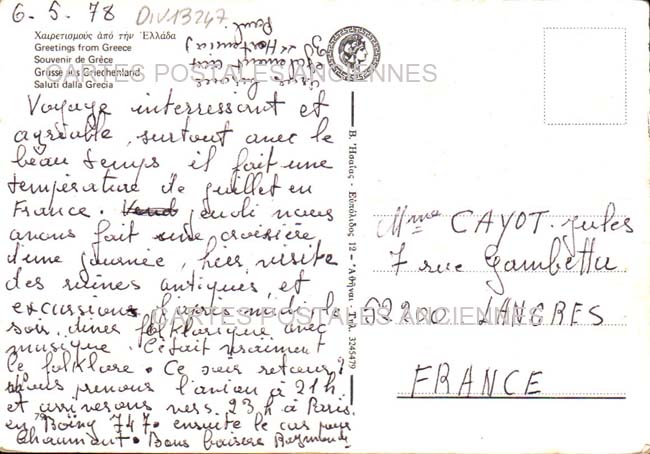 6. 5. 78
DIV13247
Χαιρετισμούς ἀπό τήν Ἑλλάδα
Greetings from Greece
Souvenir de Grèce
Grüsse aus Griechenland
Saluti dalla Grecia
CARTES POSTALES ANCIENNES
Voyage interressant et
agréable, surtout avec le
beau temps il fait une
température de juillet en
France. jeudi nous
avons fait une croisière
d'une journée, hier visite
des ruines antiques et
excursions l'après midi, le
soir dîner folklorique avec
musique. C'était vraiment
le folklore. Ce soir retour?
nous prenons l'avion à 21h
et arriverons vers 23h à Paris
en Boïng 747. ensuite le car pour
Chaumont. Bons baisers Raymonde
Β. Ἡσαΐας - Εὐπόλιδος 12 - Ἀθῆναι - Τηλ. 3245479
Mme CAYOT. Jules
7 rue Gambetta
52200 LANGRES
CARTES POSTALES ANCIENNES
FRANCE